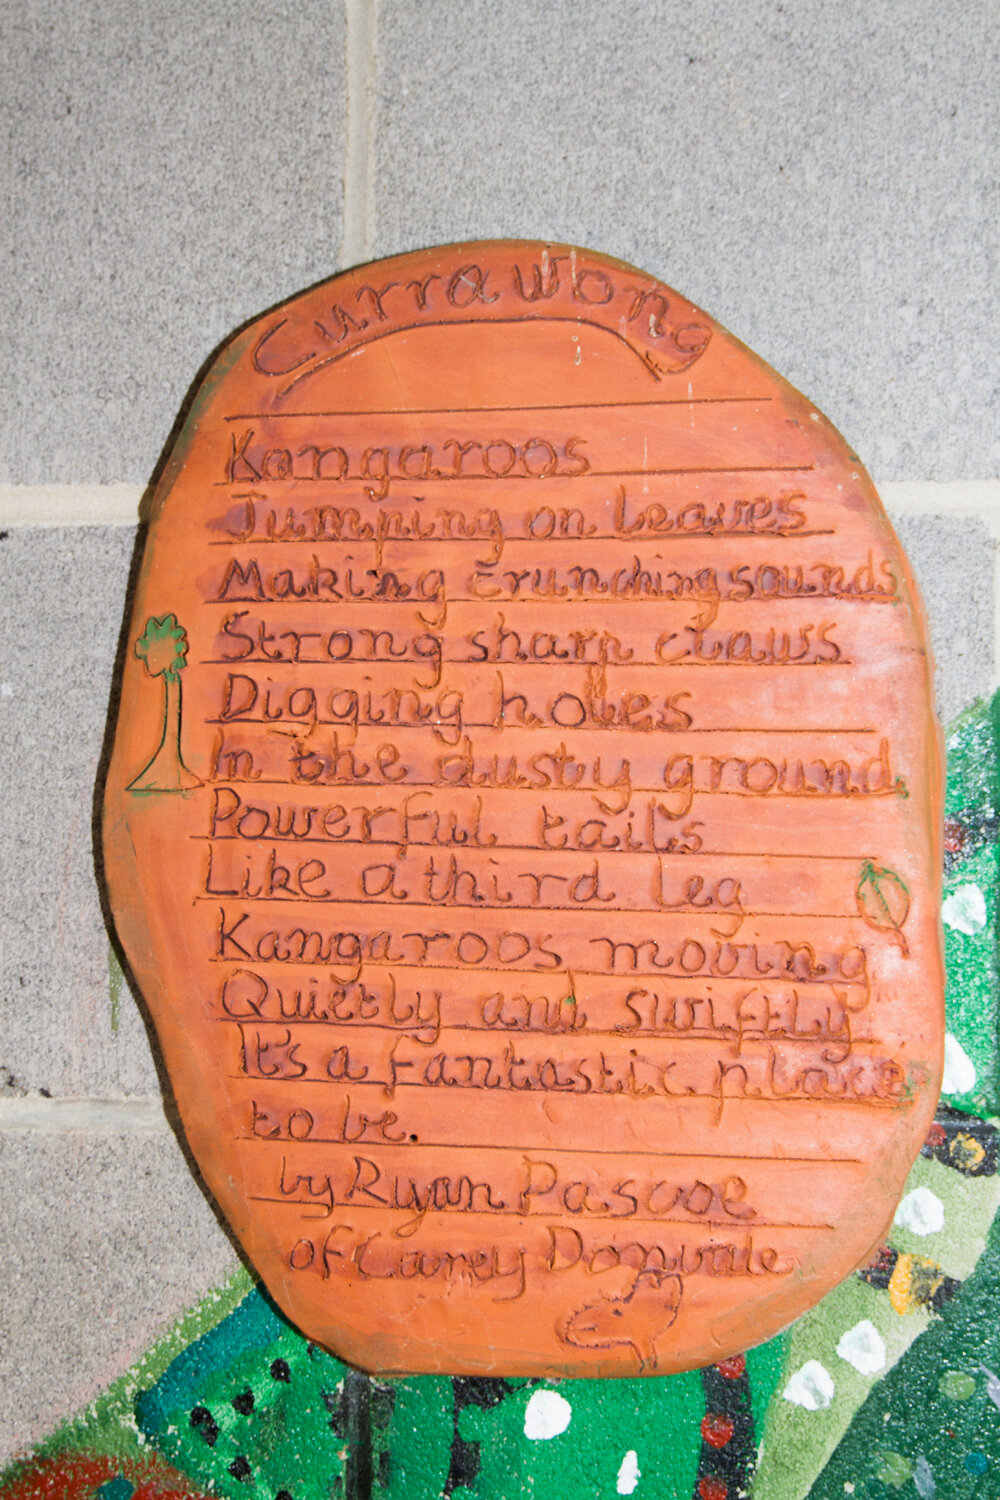 Currawong
Kangaroos
Jumping on leaves
Making crunching sounds
Strong sharp claws
Digging holes
In the dusty ground
Powerful tails
Like a third leg
Kangaroos moving
Quietly and swiftly
It's a fantastic place
to be.
by Ryan Pascoe
of Carey Donvale